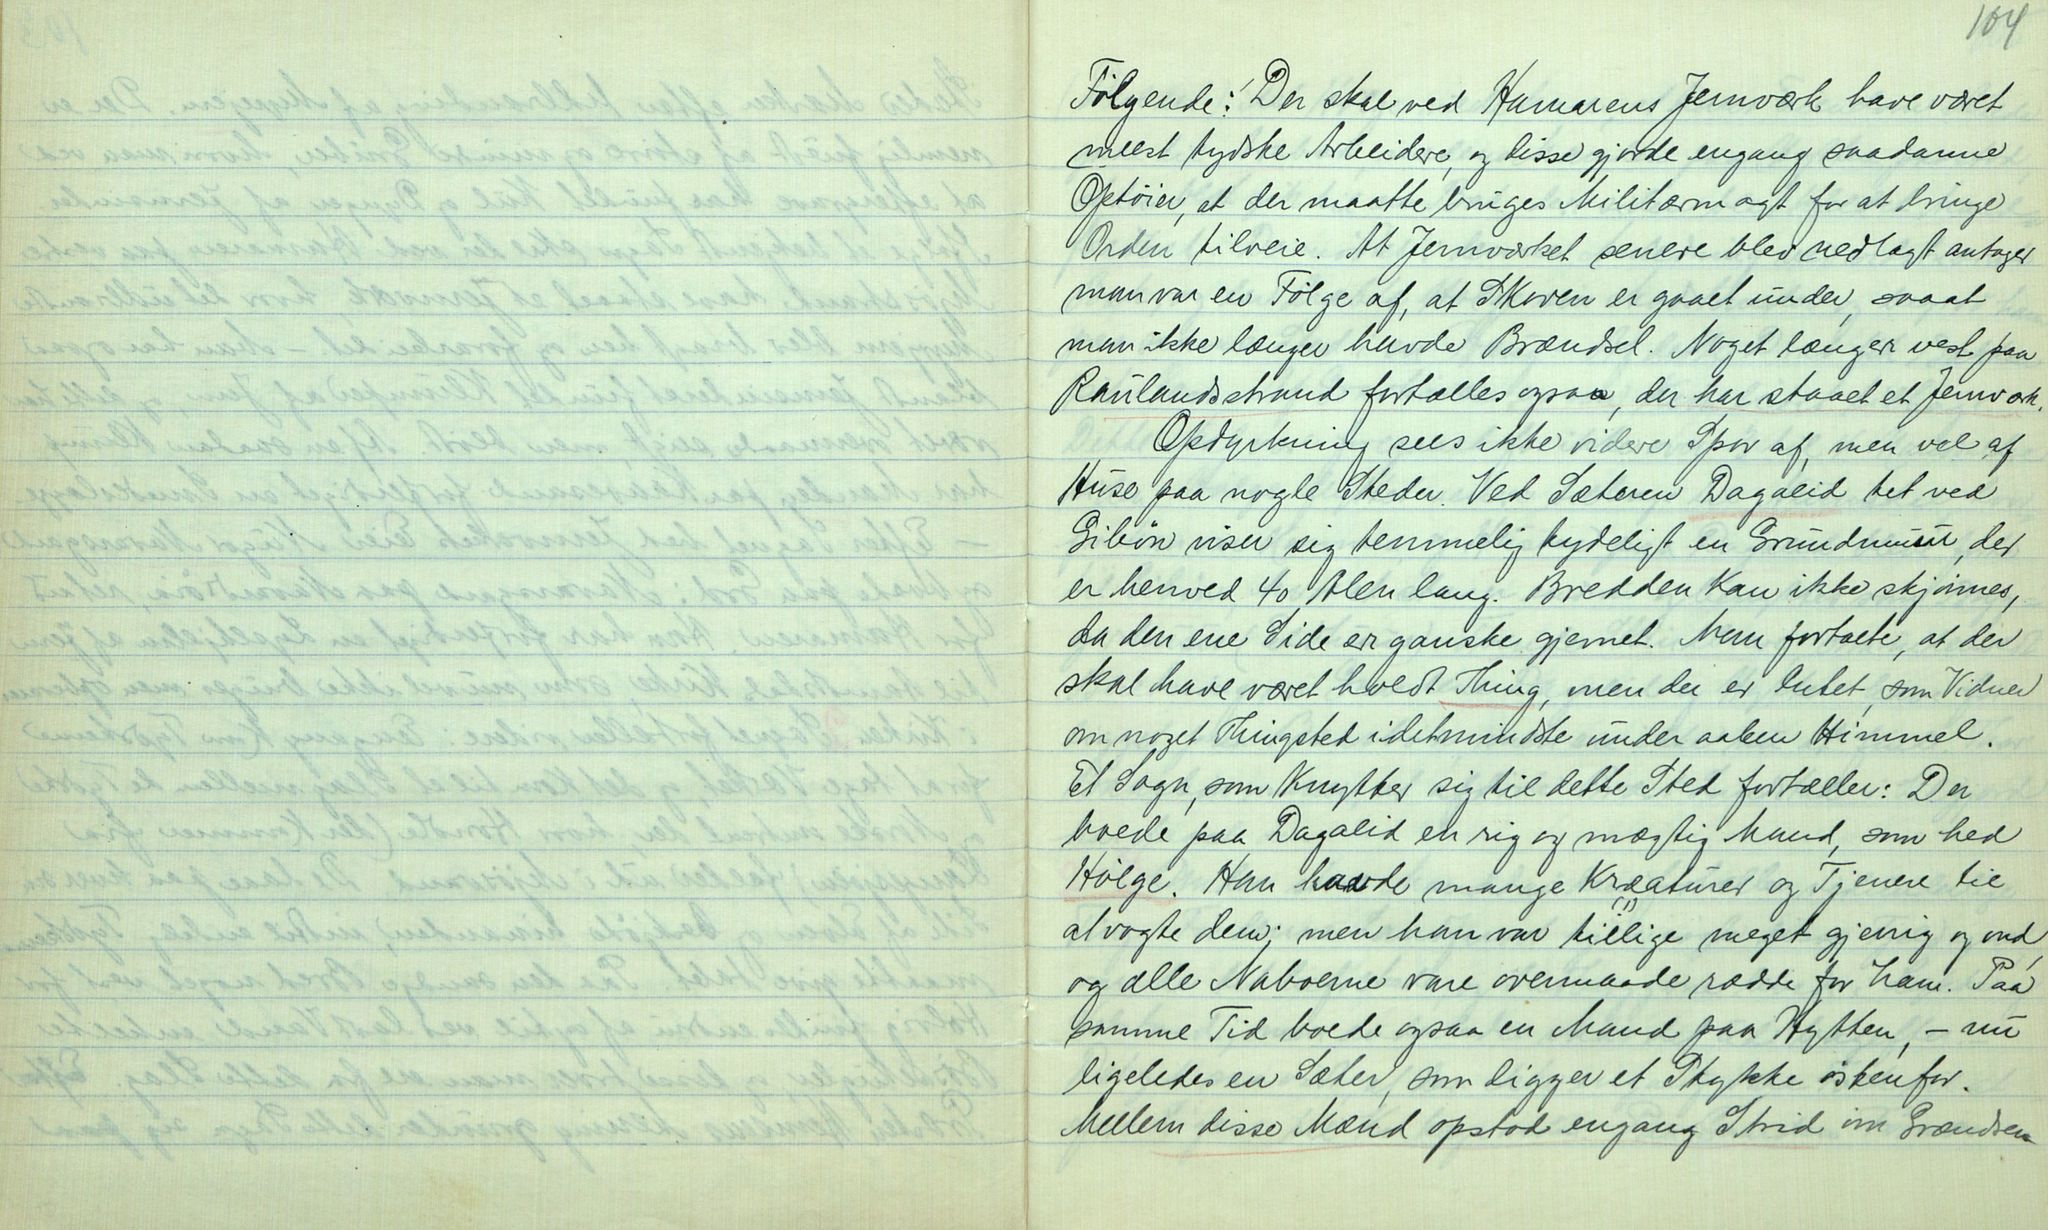 104
Følgende: Der skal ved Hamarens Jernværk have været
meest tydske Arbeidere, og disse gjorde engang saadanne
Optöier, at der maatte bruges Militærmagt for at bringe
Orden tilveie. At Jernværket senere blev nedlagt antager
man var en Følge af, at Skoven er gaaet under, saaat
man ikke længer havde Brændsel. Noget længere vest paa
Raulandsstrand fortælles ogsaa, der har staaet et Jernværk.
Opdyrkning sees ikke videre Spor af, men vel af
Huse paa nogle Steder. Ved Sæteren Dagalid tet ved
Gibøn viser sig temmelig tydeligt en Grundmuur, der
er henved 40 Alen lang. Bredden kan ikke skjønnes,
da den ene Side er ganske gjemt. Man fortalte, at der
skal have været holdt Thing, men der er Intet, som Vidner
om noget Thingsted idetmindste under aaben Himmel.
Et Sagn, som knytter sig til dette Sted fortæller: Der
boede paa Dagalid en rig og mægtig Mand, som hed
Hølge. Han havde mange Kreaturer og Tjenere til
at vogte dem; men han var tillige (!) meget gjerrig og ond,
og alle Naboerne vare overmaade rædde for ham. Paa
samme Tid boede ogsaa en Mand paa Hytten, – nu
ligeledes en Sæter, som ligger et Stykke østenfor.
Mellem disse Mænd opstod engang Strid om Grændsen